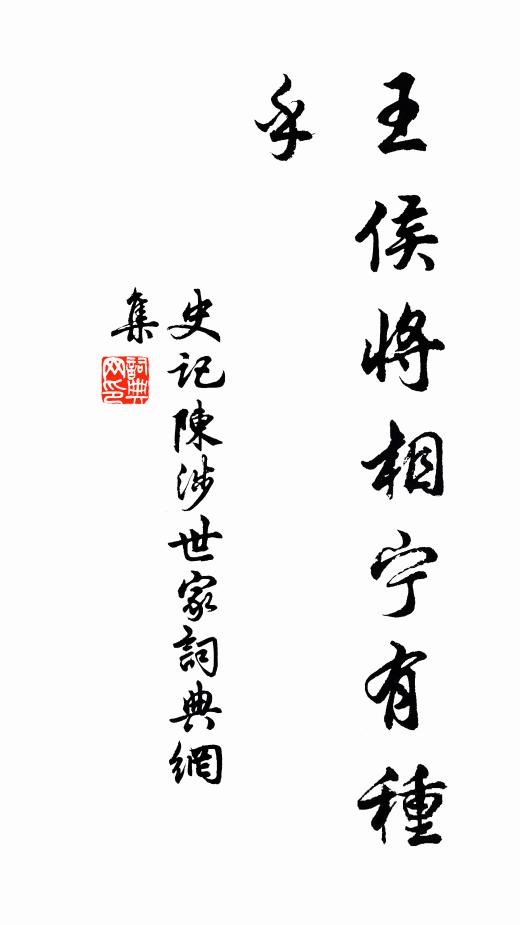 王侯將相宁有種
乎
史记陳涉世家詞典網
集
詞典
网印